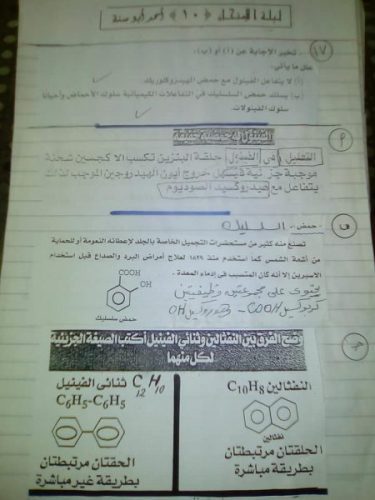 ليلة الامتحان (١٠) أحمد أبو سنة
١٧
- تخير الإجابة عن (أ) أو (ب).
علل ما يأتي:
(أ) لا يتفاعل الفينول مع حمض الهيدروكلوريك.
(ب) يسلك حمض السلسليك في التفاعلات الكيميائية سلوك الأحماض وأحيانا
سلوك الفينولات.
الفينيل في الفينول حلقة البنزين تكسب الاكسجين شحنة
موجبة جزئية فيسهل خروج أيون الهيدروجين الموجب لذلك
يتفاعل مع هيدروكسيد الصوديوم
- حمض السلسليك
تصنع منه كثير من مستحضرات التجميل الخاصة بالجلد لإعطائه النعومة أو للحماية
من أشعة الشمس كما استخدم منذ ١٨٢٩ لعلاج أمراض البرد والصداع قبل استخدام
الأسبرين إلا أنه كان المتسبب في إدماء المعدة.
COOH
OH
حمض سلسليك
يحتوى على مجموعتين وظيفيتين
كربوكسيل COOH- وهيدروكسيل OH
وضح الفرق بين النفثالين وثنائي الفينيل أكتب الصيغة الجزيئية
لكل منهما
النفثالين C10H8
نفثالين
الحلقتان مرتبطتان
بطريقة مباشرة
ثنائى الفينيل C12H10
C6H5-C6H5
الحقتان مرتبطتان
بطريقة غير مباشرة